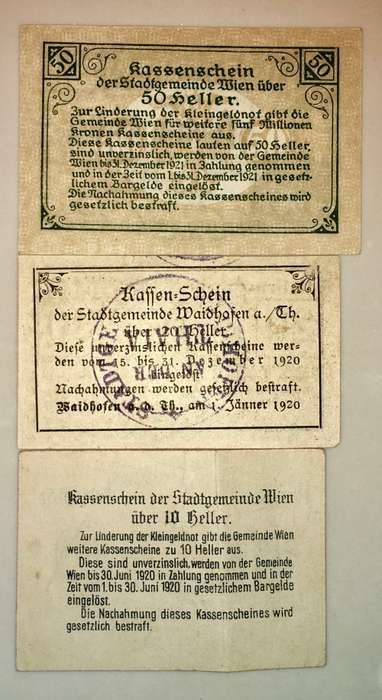 50 50
Kassenschein
der Stadtgemeinde Wien über
50 Heller.
Zur Linderung der Kleingeldnot gibt die
Gemeinde Wien für weitere fünf Millionen
Kronen Kassenscheine aus.
Diese Kassenscheine lauten auf 50 Heller,
sind unverzinslich, werden von der Gemeinde
Wien bis 31. Dezember 1921 in Zahlung genommen
und in der Zeit vom 1. bis 31. Dezember 1921 in gesetz-
lichem Bargelde eingelöst.
Die Nachahmung dieses Kassenscheines wird
gesetzlich bestraft.
Kassen-Schein
der Stadtgemeinde Waidhofen a./Th.
über 20 Heller
Diese unverzinslichen Kassenscheine wer-
den vom 15. bis 31. Dezember 1920
eingelöst.
Nachahmungen werden gesetzlich bestraft.
Waidhofen a. d. Th., am 1. Jänner 1920
AN DER
THAYA
Kassenschein der Stadtgemeinde Wien
über 10 Heller.
Zur Linderung der Kleingeldnot gibt die Gemeinde Wien
weitere Kassenscheine zu 10 Heller aus.
Diese sind unverzinslich, werden von der Gemeinde
Wien bis 30. Juni 1920 in Zahlung genommen und in der
Zeit vom 1. bis 30. Juni 1920 in gesetzlichem Bargelde
eingelöst.
Die Nachahmung dieses Kassenscheines wird
gesetzlich bestraft.